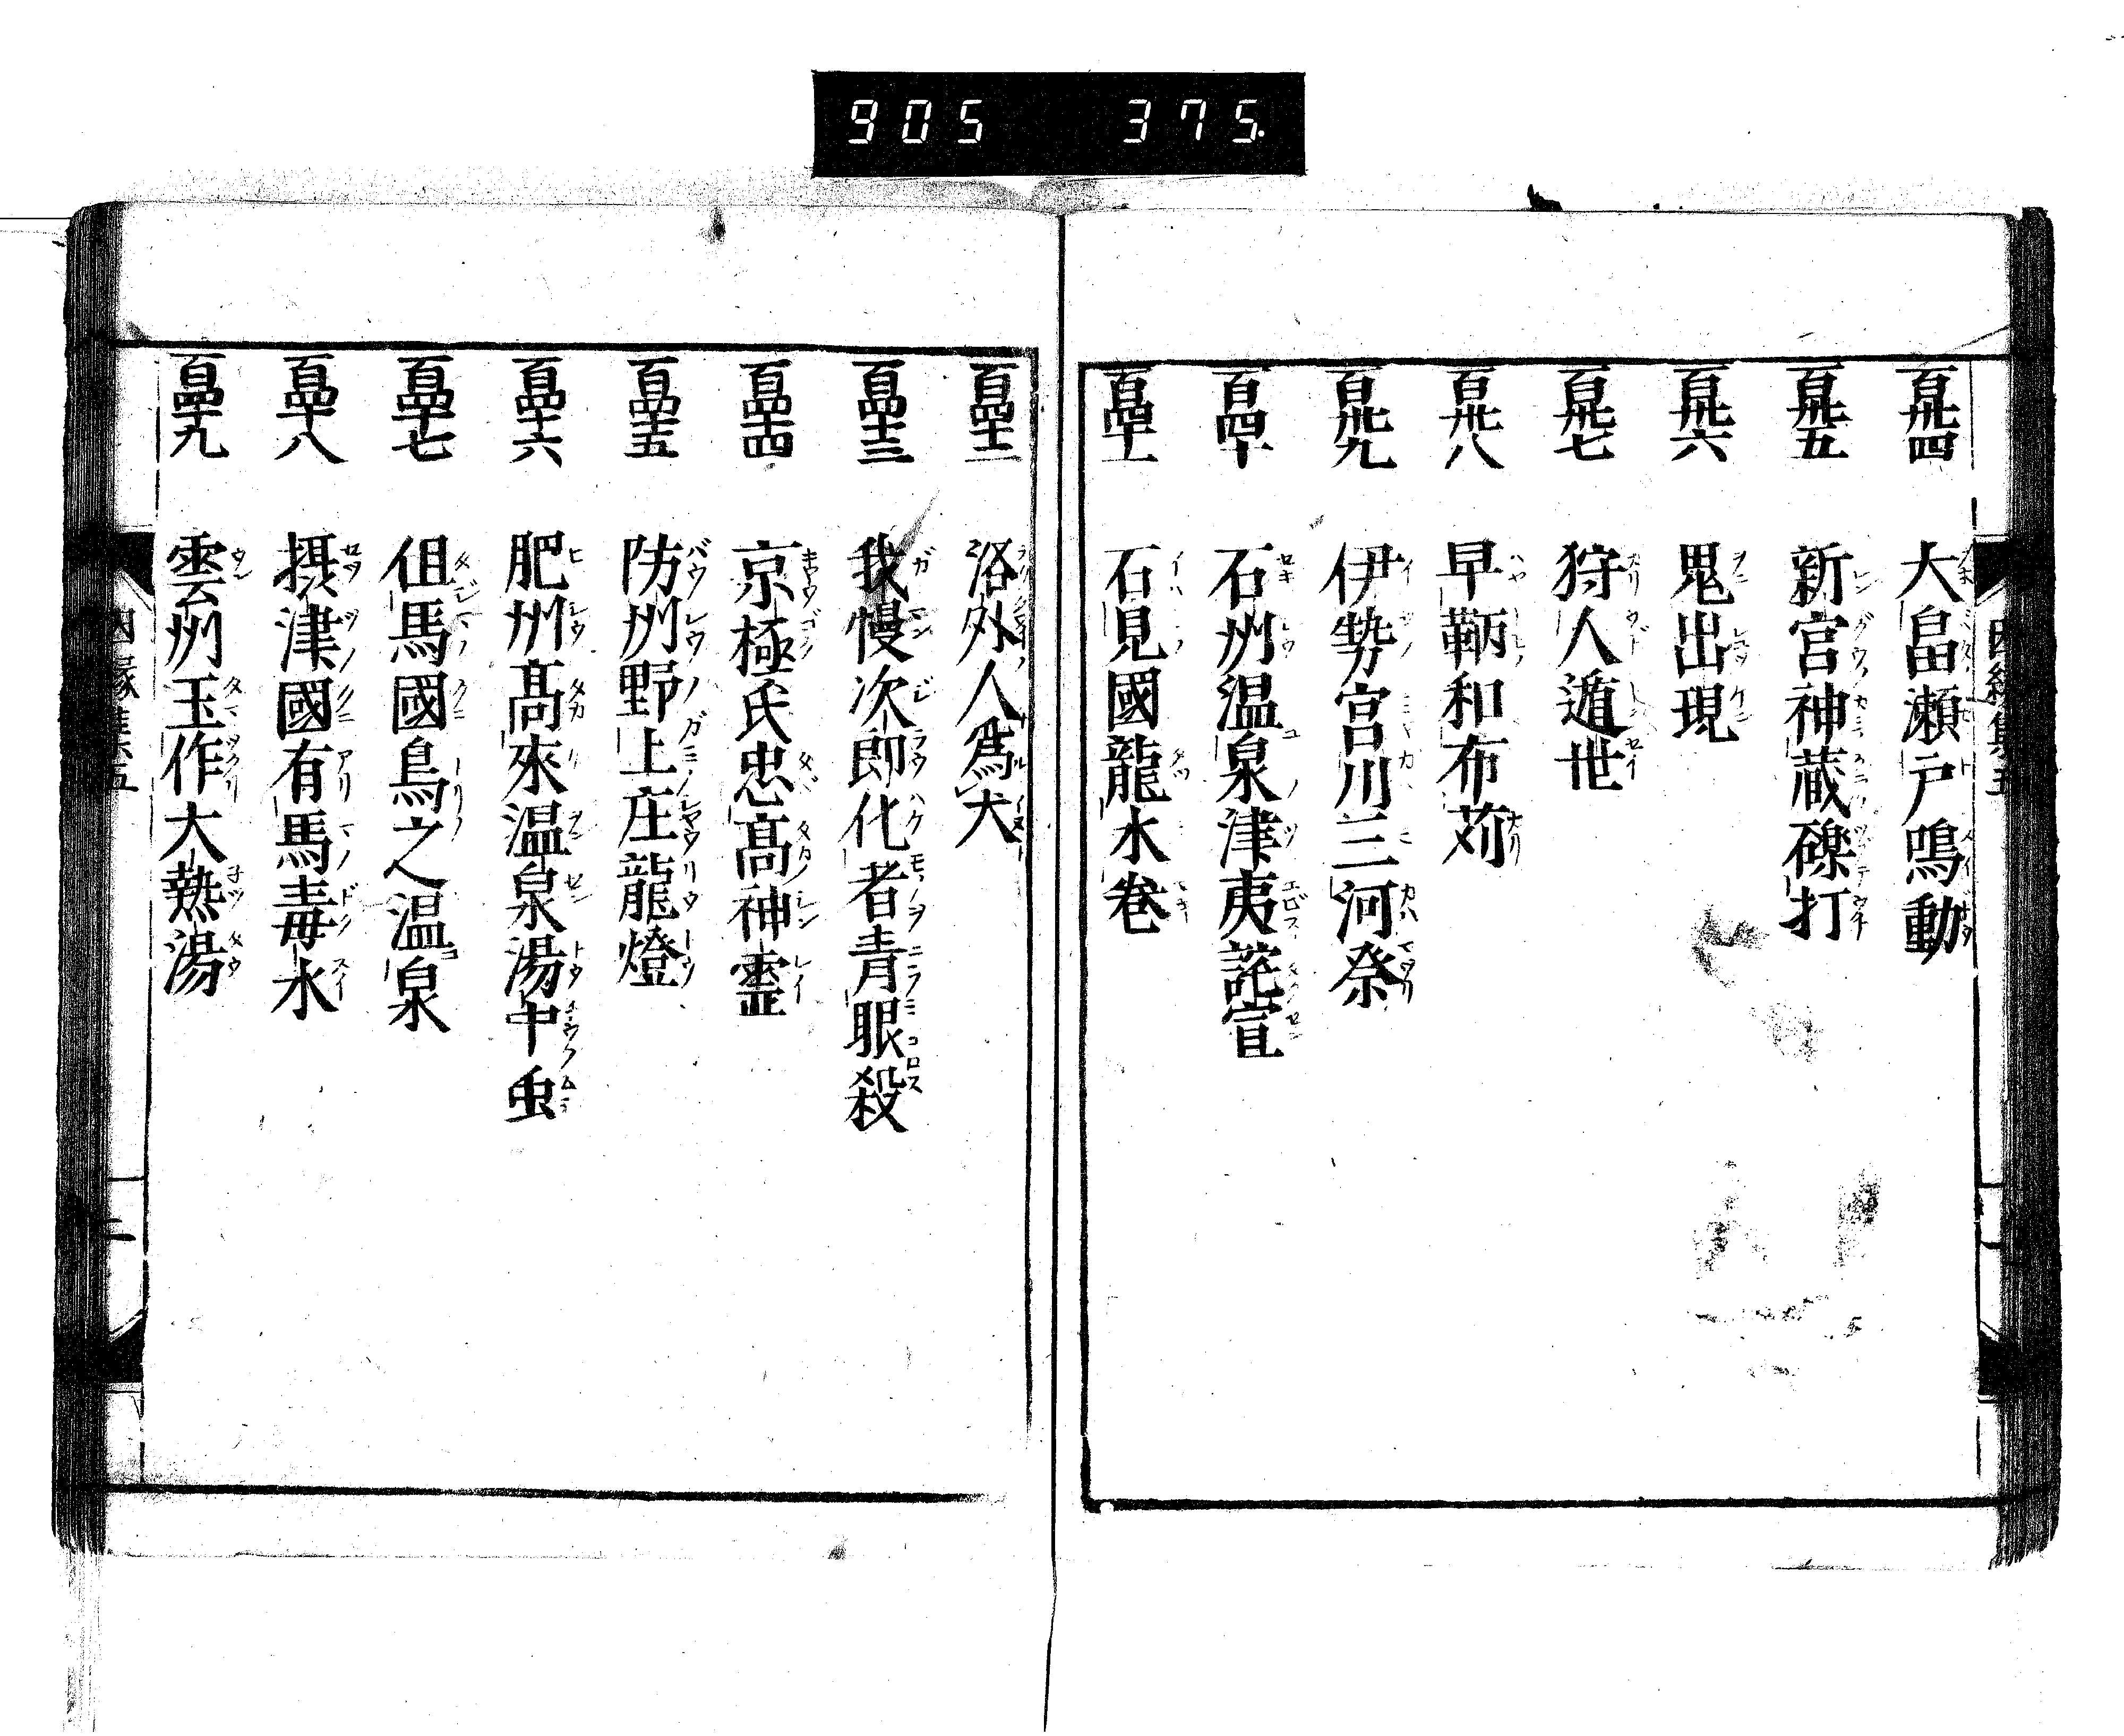 905 375.
百卅四 大畠瀬戸鳴動
百卅五 新宮神蔵礫打
百卅六 鬼出現
百卅七 狩人遁世
百卅八 早鞆和布苅
百卅九 伊勢宮川三河祭
百四十 石州温泉津夷託宣
百四十一 石見國龍水卷
百四十二 洛外人爲犬
百四十三 我慢次郎化者青眼殺
百四十四 京極氏忠髙神霊
百四十五 防州野上庄龍燈
百四十六 肥州髙來温泉湯中虫
百四十七 但馬國鳥之温泉
百四十八 摂津國有馬毒水
百四十九 雲州玉作大熱湯